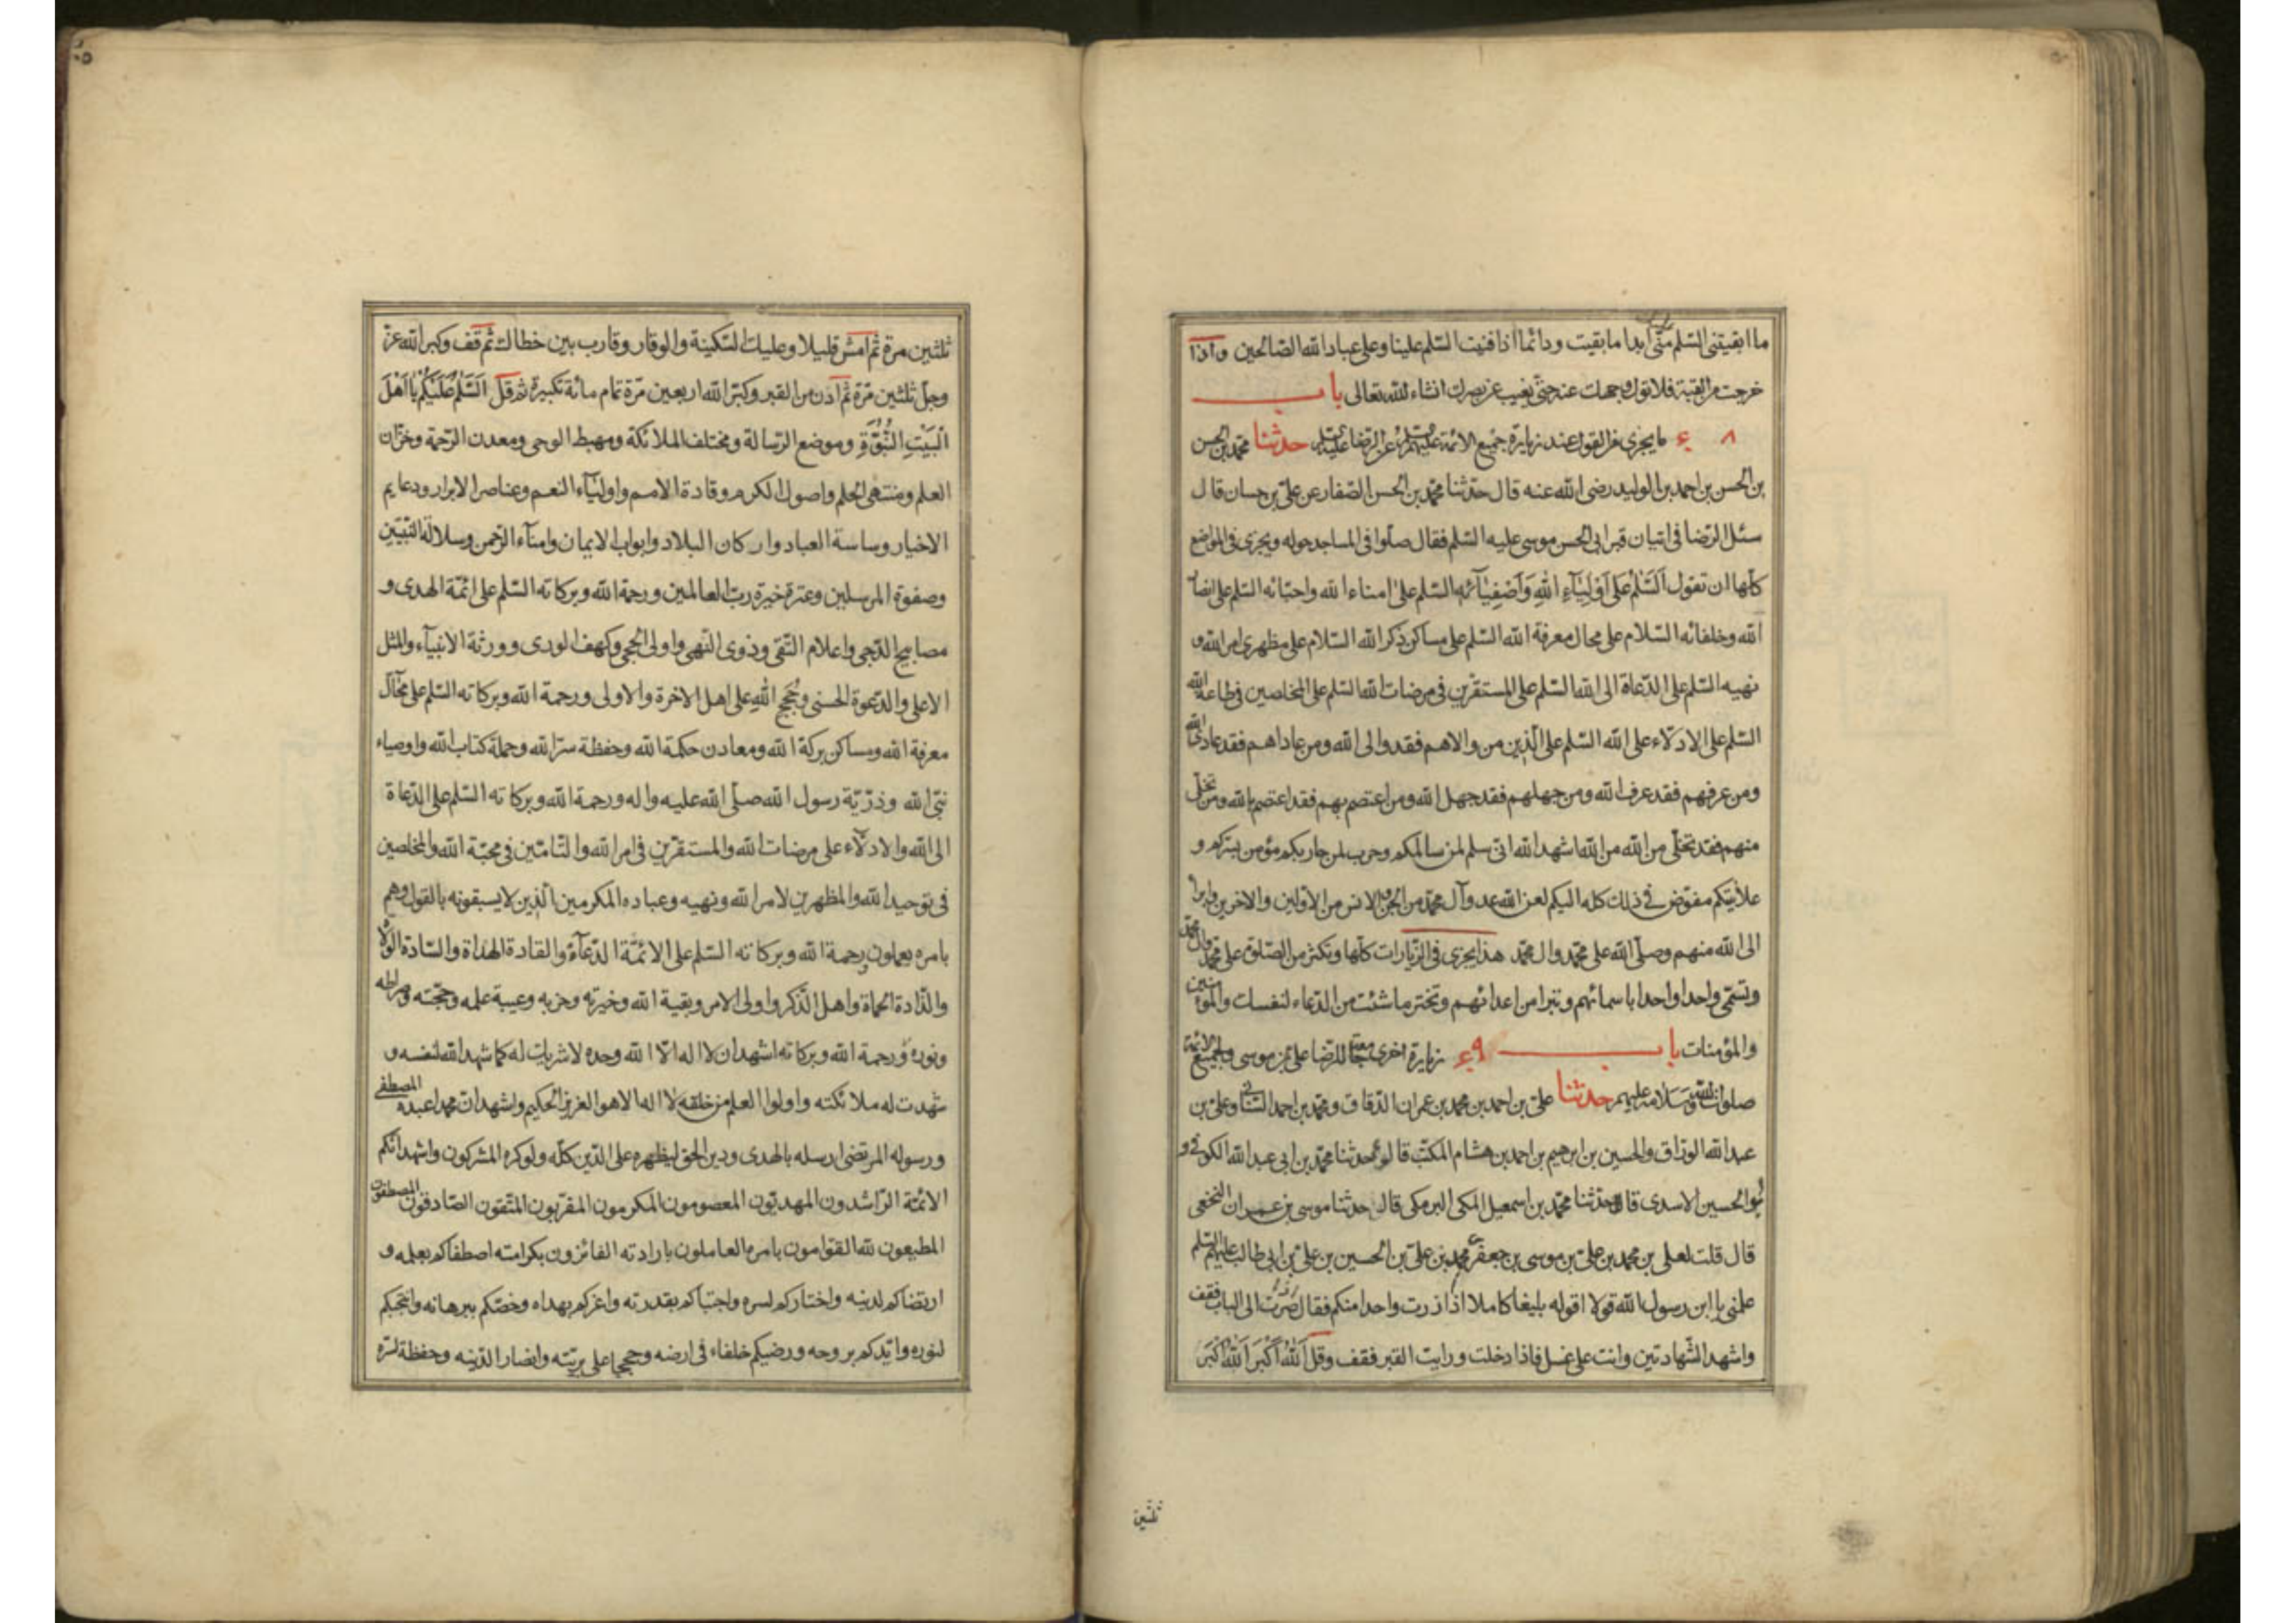 ما ابقيتنى السّلم منّى ابدا ما بقيت ودائما اذا فنيت السّلم علينا وعلى عباد الله الصّالحين واذا
خرجت من القبة فلا تول وجهك عنه حتّى يغيب عن بصرك انشاء الله تعالى باب
٤٨ ما يجزى من القول عند زيارة جميع الائمة عليهم السلم عن الرّضا عليه السلم حدّثنا محمّد بن الحسن
بن الحسن بن احمد بن الوليد رضى الله عنه قال حدّثنا محمّد بن الحسن الصّفار عن علىّ بن حسان قال
سئل الرّضا فى اتيان قبر ابى الحسن موسى عليه السّلم فقال صلّوا فى المساجد حوله ويجزى فى المواضع
كلّها ان تقول اَلسَّلٰمُ عَلٰى اَوْلِيَآءِ اللهِ وَاَصْفِيَآئِهِ السّلم على امناء الله واحبّائه السّلم على انصار
الله وخلفائه السّلام على محال معرفة الله السّلم على مساكن ذكر الله السّلام على مظهرى امر الله و
نهيه السّلم على الدّعاة الى الله السّلم على المستقرّين فى مرضات الله السّلم على المخلصين فى طاعة الله
السّلم على الادلّاء على الله السّلم على الّذين من والاهم فقد والى الله ومن عاداهم فقد عادى الله
ومن عرفهم فقد عرف الله ومن جهلهم فقد جهل الله ومن اعتصم بهم فقد اعتصم بالله ومن تخلّى
منهم فقد تخلّى من الله من الله اشهد الله انّى سلم لمن سالمكم وحرب لمن حاربكم مؤمن بسرّكم و
علانيتكم مفوّض فى ذلك كله اليكم لعن الله عدو آل محمّد من الجن والانس من الاوّلين والاخرين وابرا
الى الله منهم وصلّى الله على محمّد وال محمّد هذا يجزى فى الزّيارات كلّها وتكثر من الصّلوة على محمّد وال محمّد
وتسمّى واحدا واحدا باسمائهم وتبرا من اعدائهم وتختر ما شئت من الدّعاء لنفسك والمؤمنين
والمؤمنات باب ٤٩ زيارة اخرى جامعة للرّضا على بن موسى ولجميع الائمة
صلوات الله وسلامه عليهم حدّثنا علىّ بن احمد بن محمد بن عمران الدّقاق ومحمّد بن احمد السّنانى وعلىّ بن
عبد الله الورّاق والحسين بن ابرهيم بن احمد بن هشام المكتّب قالوا حدّثنا محمّد بن ابى عبد الله الكوفى و
ابو الحسين الاسدى قال حدّثنا محمّد بن اسمعيل المكى البرمكى قال حدثنا موسى بن عمران النّخعى
قال قلت لعلى بن محمد بن علىّ بن موسى بن جعفر بن محمد بن علىّ بن الحسين بن علىّ بن ابى طالب عليهم السّلم
علمنى يا ابن رسول الله قولا اقوله بليغا كاملا اذا زرت واحدا منكم فقال اذا صرت الى الباب فقف
واشهد الشّهادتين وانت على غسل فاذا دخلت ورايت القبر فقف وقل اَللهُ اَكْبَر اَللهُ اَكْبَر
ثلثين
ثلثين مرة ثم امش قليلا وعليك السّكينة والوقار وقارب بين خطاك ثم قف وكبر الله عزّ
وجلّ ثلثين مرّة ثم ادن من القبر وكبّر الله اربعين مرّة تمام مائة تكبيرة ثم قل اَلسَّلٰمُ عَلَيْكُمْ يا اَهْلَ
الْبَيْتِ النُّبُوَّةِ وموضع الرّسالة ومختلف الملائكة ومهبط الوحى ومعدن الرّحمة وخزّان
العلم ومنتهى الحلم واصول الكرم وقادة الامم واولياء النعم وعناصر الابرار ودعايم
الاخيار وساسة العباد واركان البلاد وابواب الايمان وامناء الرّحمن وسلالة النّبيّين
وصفوة المرسلين وعترة خيرة ربّ العالمين ورحمة الله وبركاته السّلم على ائمّة الهدى و
مصابيح الدّجى واعلام التّقى وذوى النّهى واولى الحجى وكهف الورى وورثة الانبيآء والمثل
الاعلى والدّعوة الحسنى وحُجَجِ اللهِ على اهل الاخرة والاولى ورحمة الله وبركاته السّلم على محآلّ
معرفة الله ومساكن بركة الله ومعادن حكمة الله وحفظة سرّ الله وحملة كتاب الله واوصياء
نبىّ الله وذرّيّة رسول الله صلّى الله عليه واله ورحمة الله وبركاته السّلم على الدّعاة
الى الله والادلّاء على مرضات الله والمستقرّين فى امر الله والتّامّين فى محبّة الله والمخلصين
فى توحيد الله والمظهرين لامر الله ونهيه وعباده المكرمين الّذين لا يسبقونه بالقول وهم
بامره يعملون ورحمة الله وبركاته السّلم على الائمّة الدّعآة والقادة الهداة والسّادة الولاة
والذّادة الحماة واهل الذّكر واولى الامر وبقية الله وخيرته وحزبه وعيبة علمه وحجّته وصراطه
ونوره ورحمة الله وبركاته اشهد ان لا اله الّا الله وحده لا شريك له كما شهد الله لنفسه و
شهدت له ملائكته واولوا العلم من خلقه لا اله الا هو العزيز الحكيم واشهد انّ محمدا عبده المصطفى
ورسوله المرتضى ارسله بالهدى ودين الحق ليظهره على الدّين كلّه ولو كره المشركون واشهد انّكم
الائمّة الرّاشدون المهديّون المعصومون المكرمون المقرّبون المتّقون الصّادقون المصطفون
المطيعون لله القوّامون بامره العاملون بارادته الفائزون بكرامته اصطفاكم بعلمه و
ارتضاكم لدينه واختاركم لسره واجتباكم بقدرته واعزكم بهداه وخصّكم ببرهانه وانتجبكم
لنوره وايّدكم بروحه ورضيكم خلفاء فى ارضه وحججا على بريّته وانصارا لدينه وحفظة لسرّه